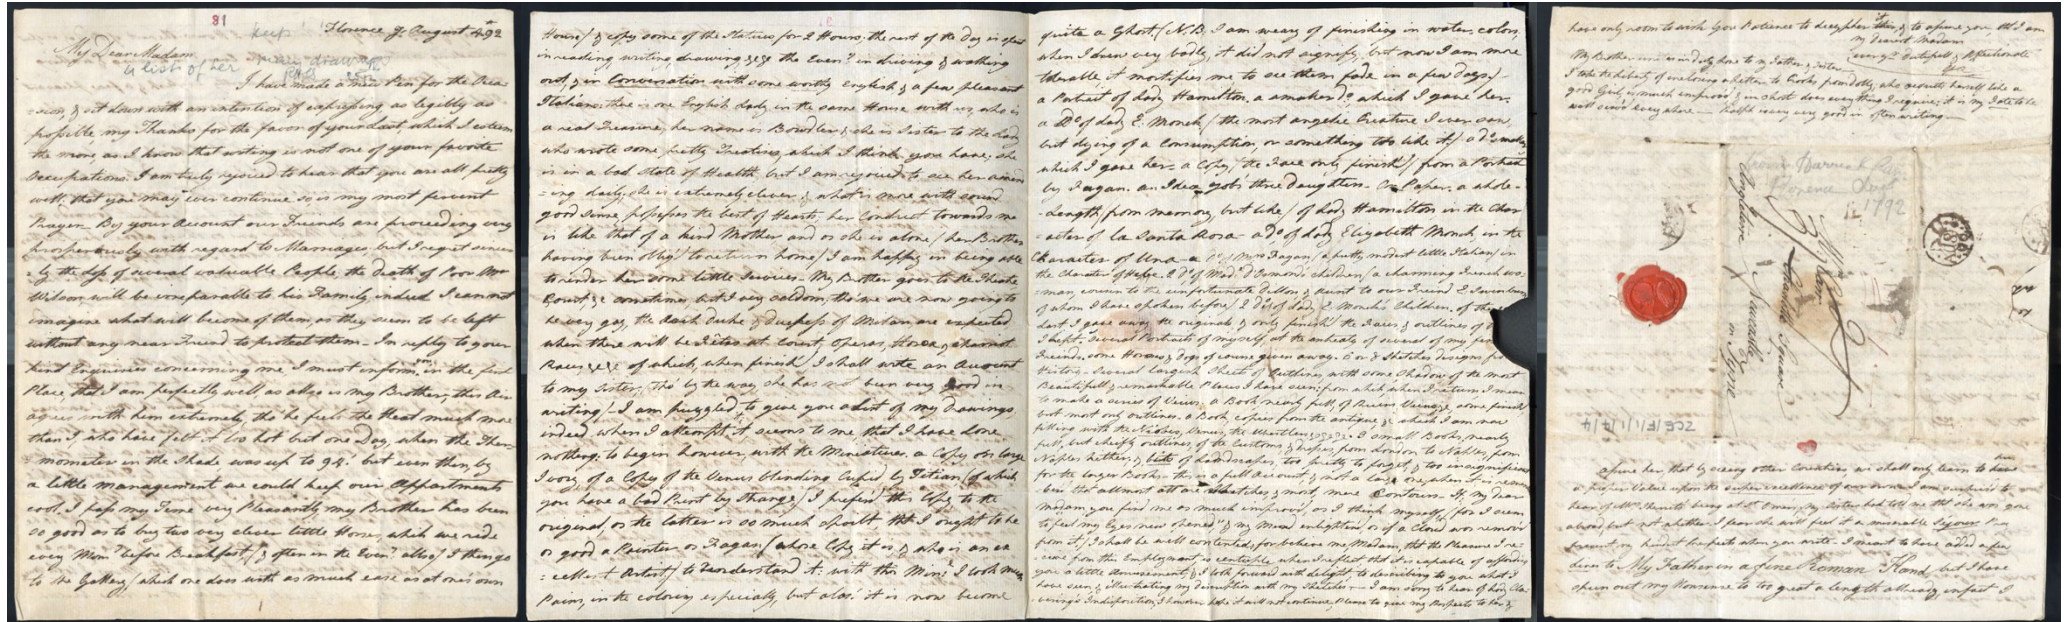 81
keep
Florence ye August 4th 92
My Dear Madam
a list of her many drawings
I have made a new Pen for the Occa-
=sion, & sit down with an intention of expressing as legibly as
possible my Thanks for the favor of your last, which I esteem
the more, as I know that writing is not one of your favorite
Occupations. I am truly rejoiced to hear that you are all pretty
well; that you may ever continue so is my most fervent
Prayer. By your Account our Friends are proceeding very
prosperously with regard to Marriages but I regret sincere
=ly the loss of several valuable People, the death of Poor Mr
Wilson will be irreparable to his Family, indeed I cannot
imagine what will become of them, as they seem to be left
without any near Friend to protect them. In reply to your
kind Enquiries concerning me I must inform you in the first
Place, that I am perfectly well as also is my Brother, this Air
agrees with him extremely, tho' he feels the Heat much more
than I, who have felt it too hot but one Day, when the Ther-
=mometer in the Shade was up to 94! but even then, by
a little management we could keep our Appartments
cool. I pass my Time very Pleasantly, my Brother has been
so good as to buy two very clever little Horses, which we ride
every Morng before Breakfast, (& often in the Eveng also) I then go
to the Gallery (which one does with as much ease as at one's own
House) & copy some of the Statues for 2 Hours; the rest of the Day is spent
in reading writing drawing &c &c the Eveng in driving & walking
out, & in Conversation with some worthy English & a few pleasant
Italians. there is one English Lady in the same House with us, who is
a real Treasure, her name is Bowdler, she is Sister to the Lady
who wrote some pretty Treatises, which I think you have; she
is in a bad state of Health, but I am rejoiced to see her amend
=ing daily; she is extremely clever, & what is more with sound
good sense, possesses the best of Hearts. her Conduct towards me
is like that of a kind Mother and as she is alone (her Brother
having been obligd to return home) I am happy in being able
to render her some little Services. My Brother goes to the Theatre
Court, &c sometimes, but I very seldom, tho' we are now going to
be very gay, the Arch Duke & Dutchess of Milan are expected
when there will be Fetes at Court, Operas, Horse, & Chariot
Races &c &c of which, when finish'd I shall write an Account
to my Sister, (tho' by the way she has not been very good in
writing) I am puzzled to give you a list of my drawings
indeed, when I attempt it seems to me that I have done
nothing; to begin however, with the Miniatures. a Copy on large
Ivory of a Copy of the Venus blinding Cupid by Titian (of which
you have a bad Print by Strange) I prefer'd this Copy to the
original, as the latter is so much spoilt that I ought to be
as good a Painter as Fagan (whose Copy it is, & who is an ex
=cellent Artist) to understand it: with this Mine I took much
Pains, in the coloring especially, but alas! it is now become
quite a Ghost (N.B. I am weary of finishing in water colors,
when I drew very badly, it did not signify, but now I am more
tolerable it mortifies me to see them fade in a few days)
a Portrait of Lady Hamilton, a smaller do which I gave her.
a Do of Lady E. Monck (the most angelic Creature I ever saw,
but dying of a Consumption, or something too like it) a do smaller
which I gave her. a Copy (the Face only, finish'd) from a Portrait
by Fagan. an Idea of Job's three Daughters. On Paper. a whole-
=Length (from memory, but like) of Lady Hamilton in the Char
=acter of la Santa Rosa - a do of Lady Elizabeth Monck in the
Character of Una - a do of Mrs Fagan (a pretty, modest little Italian) in
the Character of Hope. 2 do of Madm D'Osmond's children (a charming French wo-
=man, cousin to the unfortunate Dillon, & aunt to our Friend E. Swinburne
of whom I have spoken before) 2 do of Lady E. Monck's Children. of the
last I gave away the originals & only finish'd the Faces & outlines of t
I kept. Several Portraits of myself, at the entreaty of several of my fem
Friends. some Horses & Dogs of course given away. 6 or 8 Sketches designs fr
History. Several largish Sheets of Outlines with some Shadow of the most
Beautiful & remarkable Places I have seen; from which when I return, I mean
to make a series of Views. a Book nearly full, of Pieces
but most only outlines. a Book copies from the antique & which I am now
filling with the Niobes, Venus, the Wrestlers &c &c &c. 2 small Books, nearly
full, but chiefly outlines, of the Customs & dresses, from London to Naples, from
Naples hither, & bits of Landscapes, too pretty to forget, & too insignificant
for the larger Books. this is a full Account, & not a large one, when it is remem
=ber'd that allmost all are Sketches, & most, mere Contours. If, my dear
Madam, you find me as much improv'd as I think myself, (for I seem
to feel my Eyes new opened, & my Mind enlighten'd as if a Cloud was remov'd
from it) I shall be well contented, for believe me, Madam, that the Pleasure I re-
=ceive from this Employment is centuple when I reflect that it is capable of affording
you a little Amusement, & I look forward with delight, to describing to you what I
have seen, & illustrating my description with my Sketches. I am sorry to hear of Lady Cla-
=vering's Indisposition, I however hope it will not continue, Please to give my Respects to her &
assure her, that by seeing other Countries, we shall only learn to have
a proper Value upon the super excellence of our own. I am surprised to
hear of Mrs being at St Omer, my Sister had told me that she was gone
abroad, but not whither. I fear she will feel it a miserable Sejour. Pray
present my kindest Respects when you write. I meant to have added a few
lines to My Father in a fine Roman Hand, but I have
spun out my Nonsense to too great a length already, in fact I
have only room to wish you Patience to decypher this, & to assure you, that I am
my dearest Madam
your gt Dutifull & Affectionate
My Brother unites in Duty, Love to my Father & Sister
I take the liberty of inclosing a letter to from Dolly, who acquits herself like a
good Girl, is much improv'd & in short does every thing I require; it is my Fate to be
well serv'd every where - Ralph is very very good in often writing -
from Harriet
Florence
1792
Mrs Carr
Charlotte Square
Newcastle
on Tyne
Angleterre
ZCE/F/1/1/4/4